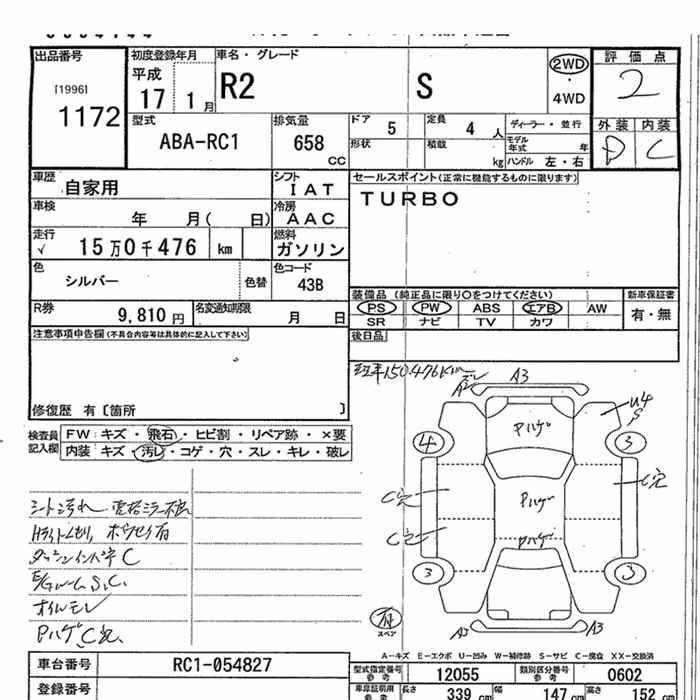 出品番号
[1996]
1172
初度登録年月
平成
17 1月
車名・グレード
R2 S
2WD
・
4WD
評価点
2
外装 内装
D C
型式
ABA-RC1
排気量
658
CC
ドア 5
定員 4 人
ディーラー・並行
形状
積載
kg
モデル年式 年
ハンドル 左・右
車歴 自家用
シフト
IAT
セールスポイント(正常に機能するものに限ります)
TURBO
車検 年 月( 日)
冷房
AAC
走行
√ 15万0千476 km
燃料
ガソリン
色
シルバー
色替
色コード
43B
装備品 (純正品に限り○をつけてください)
新車保証書
PS PW ABS エアB AW
SR ナビ TV カワ
有・無
R券
9,810円
名変通知期限
月 日
後日品
注意事項申告欄(不具合内容等は具体的に記入して下さい)
修復歴 有〔箇所 〕
検査員
記入欄
FW:キズ・飛石・ヒビ割・リペア跡・×要
内装:キズ・汚レ・コゲ・穴・スレ・キレ・破レ
150.476km
A3
U4
S
Pハゲ
4
3
C穴
Pハゲ
C穴
C穴
Pハゲ
3
3
スペア
A3
シート汚れ
C
E/Gルーム S.C.
オイルモレ
Pハゲ C穴
A-キズ E-エクボ U-凹み W-補修跡 S-サビ C-腐食 XX-交換済
車台番号
RC1-054827
登録番号
型式指定番号
参考
12055
類別区分番号
参考
0602
車庫証明用
参考
長さ 339 cm
幅 147 cm
高さ 152 cm